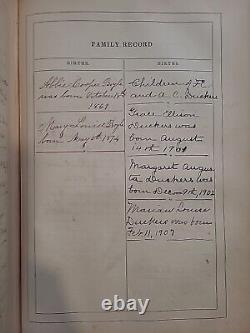 FAMILY RECORD
BIRTHS.
BIRTHS.
Abbie Cooper
was born October
1869
Mary Louise
born May 1874
Children of F C
and A. C. Duckers
Grace Ellison
Duckers was
born August
14th 1901
Margaret Augus
ta Duckers was
born Decem 9th, 1902
Marian Louise
Duckers was born
Feb 11, 1907